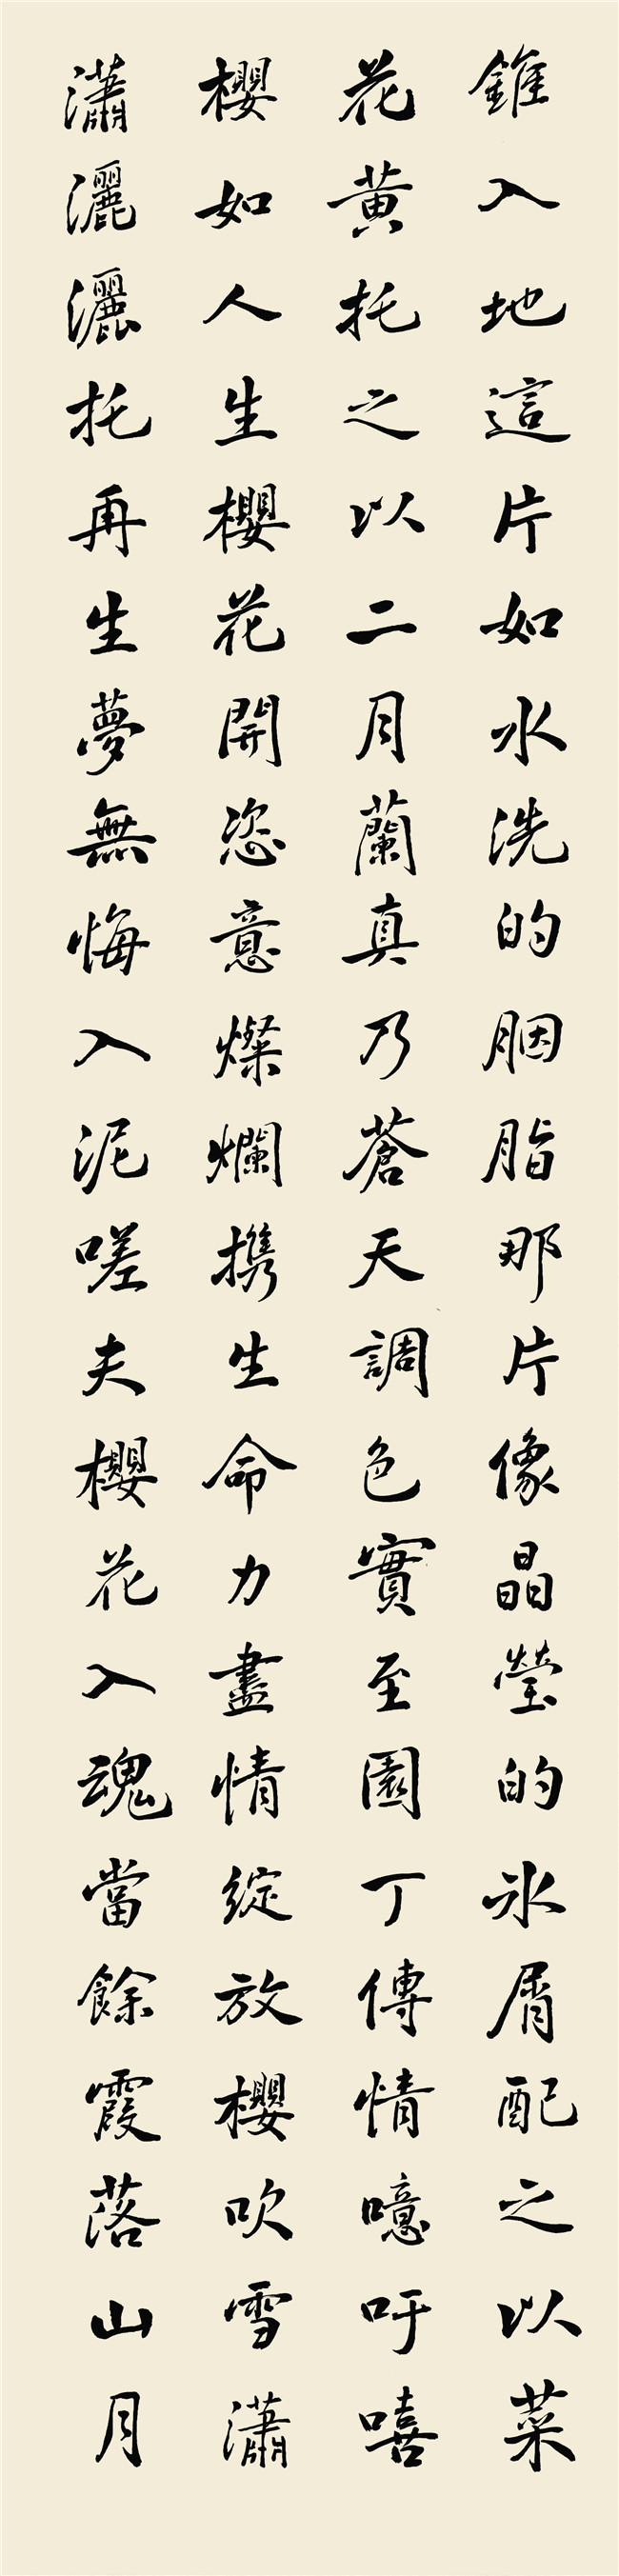 錐入地這片如水洗的胭脂那片像晶瑩的冰屑配之以菜
花黃托之以二月蘭真乃蒼天調色實至園丁傳情噫吁嘻
櫻如人生櫻花開恣意燦爛攜生命力盡情綻放櫻吹雪瀟
瀟灑灑托再生夢無悔入泥嗟夫櫻花入魂當餘霞落山月